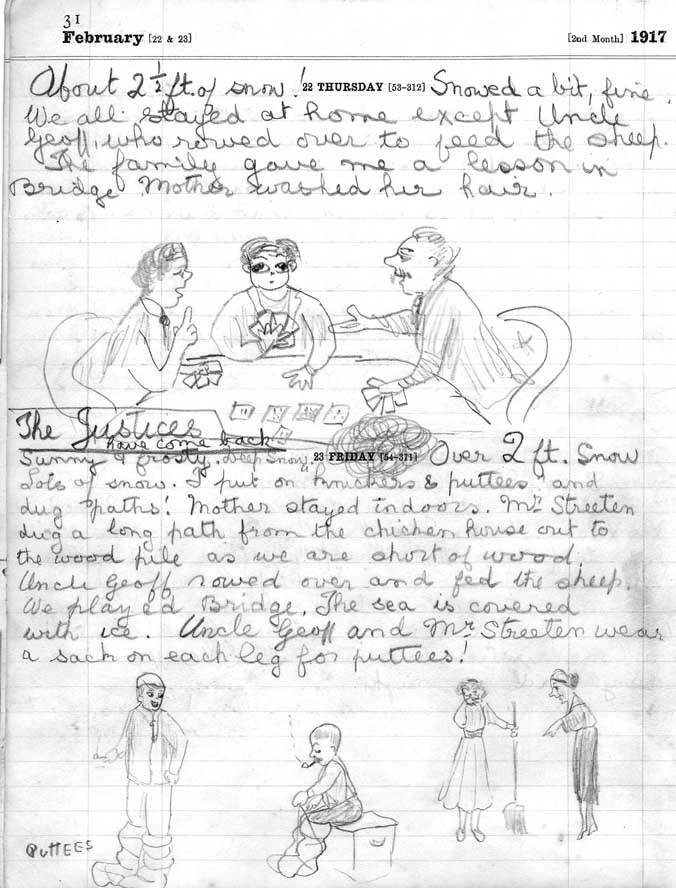 31
February [22 & 23] [2nd Month] 1917
About 2½ ft. of snow! 22 THURSDAY [53-312] Snowed a bit, fine.
We all stayed at home except Uncle
Geoff, who rowed over to feed the sheep.
The family gave me a lesson in
Bridge Mother washed her hair.
The Justices
have come back
Sunny & frosty. Deep Snow. 23 FRIDAY [54-311] Over 2 ft. Snow
Lots of snow. I put on & puttees and
dug paths! Mother stayed indoors. Mr Streeten
dug a long path from the chicken house out to
the wood pile as we are short of wood.
Uncle Geoff rowed over and fed the sheep.
We played Bridge. The sea is covered
with ice. Uncle Geoff and Mr Streeten wear
a sack on each leg for puttees!
PUTTEES